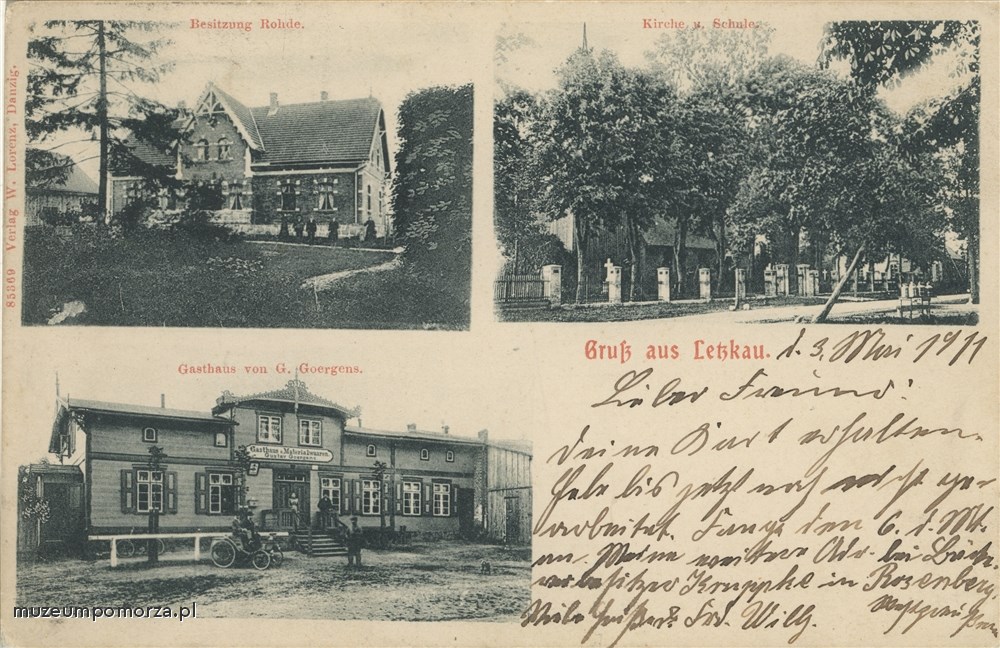 Besitzung Rohde.
Kirche u. Schule.
85369 Verlag W. Lorenz, Danzig.
Gasthaus von G. Goergens.
Gasthaus u. Materialwaaren.
Gustav Goergens
Gruß aus Letzkau. d. 3. Mai 1911
Lieber Freund!
Deine Kart erhalten.
Habe bis jetzt noch nicht ge-
arbeitet. Fange den 6. d. Mt.
an. Meine weitere Adr. bei
besitzer Kruppke in Rosenberg
Westpreußen
Viele Grüße Frd. Willy.
muzeumpomorza.pl